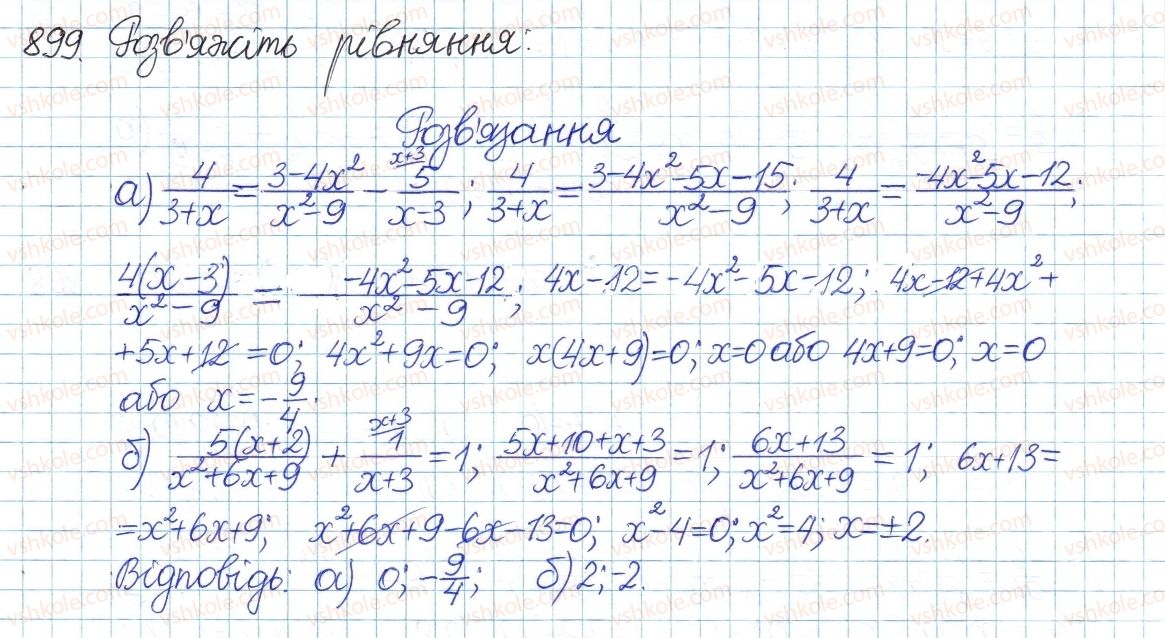 899. Розв'яжіть рівняння:
Розв'язання
а) 4/(3+x) = (3-4x²)/(x²-9) - 5/(x-3) ^(x+3); 4/(3+x) = (3-4x²-5x-15)/(x²-9); 4/(3+x) = (-4x²-5x-12)/(x²-9);
4(x-3)/(x²-9) = (-4x²-5x-12)/(x²-9); 4x-12=-4x²-5x-12; 4x-12+4x²+
+5x+12=0; 4x²+9x=0; x(4x+9)=0; x=0 або 4x+9=0; x=0
або x=-9/4.
б) 5(x+2)/(x²+6x+9) + 1/(x+3) ^(x+3) = 1; (5x+10+x+3)/(x²+6x+9) = 1; (6x+13)/(x²+6x+9) = 1; 6x+13=
=x²+6x+9; x²+6x+9-6x-13=0; x²-4=0; x²=4; x=±2.
Відповідь: а) 0; -9/4; б) 2; -2.